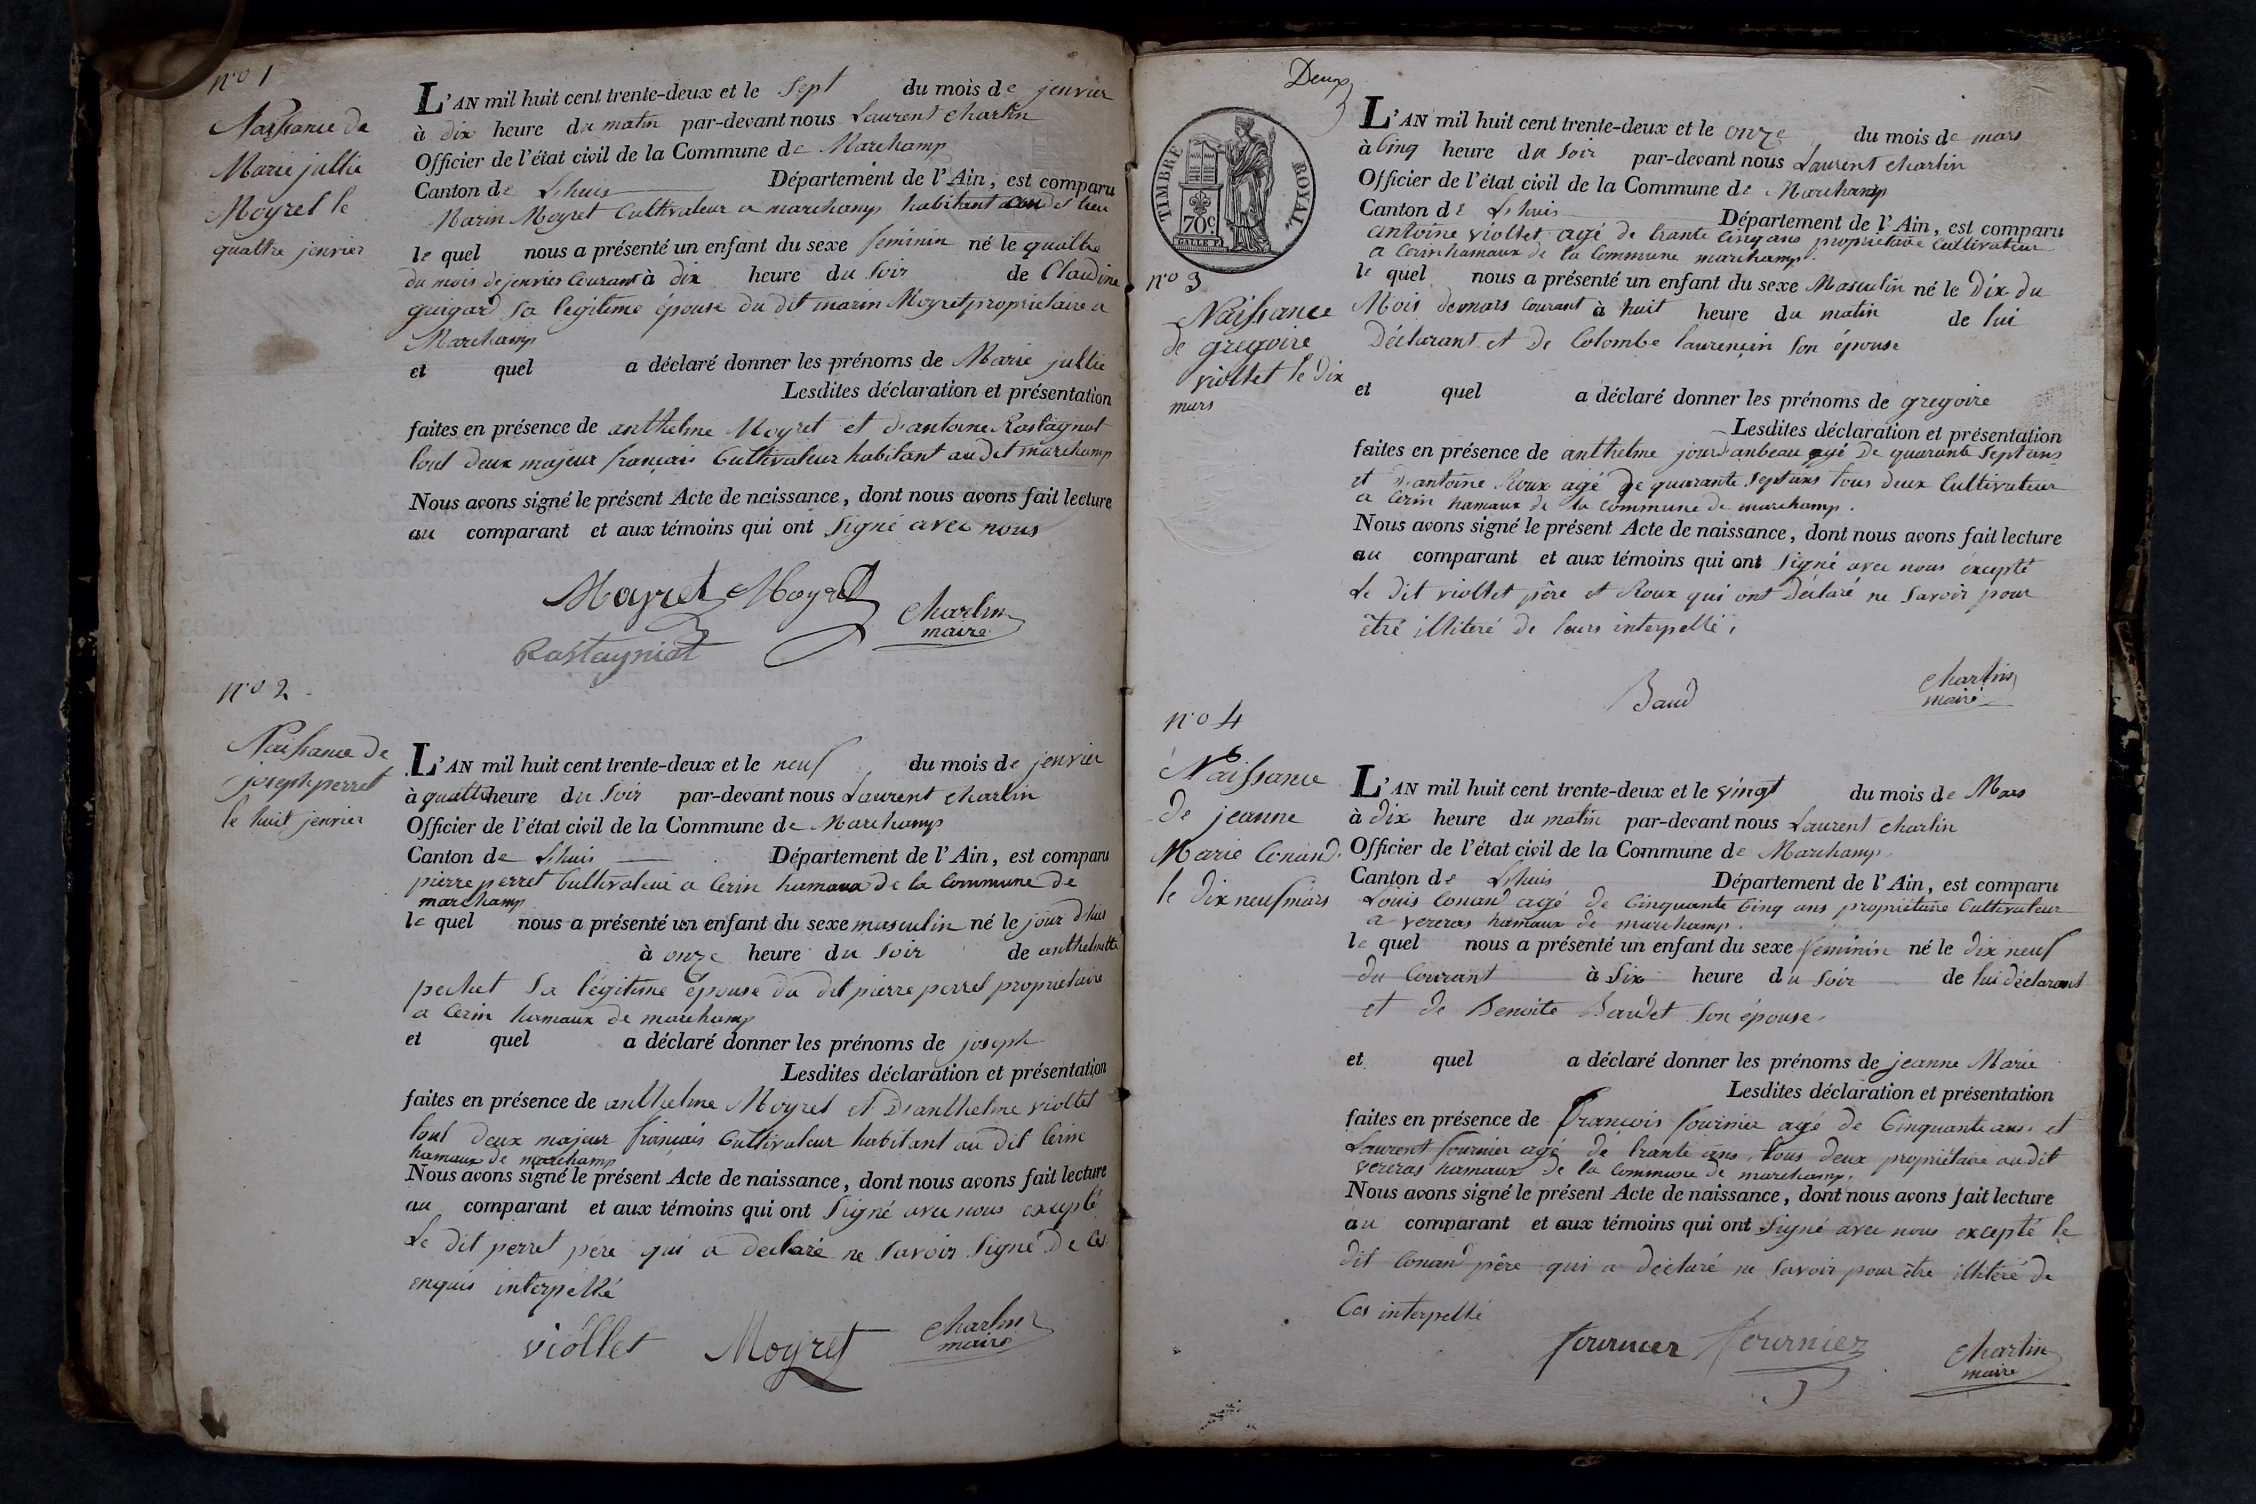 nº 1
Naissance de
Marie jullie
Moyret le
quattre jenvier
L'AN mil huit cent trente-deux et le sept du mois de jenvier
à dix heure du matin par-devant nous Laurent charlin
Officier de l'état civil de la Commune de Marchamp
Canton de Lhuis Département de l'Ain, est comparu
Marin Moyret Cultivateur a marchamp habitant au dit lieu
le quel nous a présenté un enfant du sexe feminin né le quattre
du mois de jenvier Courant à dix heure du soir de Claudine
guigard sa legitime épouse du dit marin Moyret propriétaire a
Marchamp
et quel a déclaré donner les prénoms de Marie jullie
Lesdites déclaration et présentation
faites en présence de anthelme Moyret et d'antoine Rostagnat
tout deux majeur français Cultivateur habitant au dit marchamp
Nous avons signé le présent Acte de naissance, dont nous avons fait lecture
au comparant et aux témoins qui ont signé avec nous
Moyret Moyret
charlin
maire
Rastayniat
nº 2
Naissance de
joseph perret
le huit jenvier
L'AN mil huit cent trente-deux et le neuf du mois de jenvier
à quattre heure du soir par-devant nous Laurent charlin
Officier de l'état civil de la Commune de Marchamp
Canton de Lhuis Département de l'Ain, est comparu
pierre perret Cultivateur a Cerin hamaux de la Commune de
marchamp
le quel nous a présenté un enfant du sexe masculin né le jour d'hui
à onze heure du soir de anthelmette
pechet sa légitime épouse du dit pierre perret propriétaire
a Cerin hamaux de marchamp
et quel a déclaré donner les prénoms de joseph
Lesdites déclaration et présentation
faites en présence de anthelme Moyret et D'anthelme viollet
tout deux majeur français Cultivateur habitant au dit Cerin
hamaux de marchamp
Nous avons signé le présent Acte de naissance, dont nous avons fait lecture
au comparant et aux témoins qui ont signé avec nous excepté
Le dit perret pere qui a declaré ne savoir signé de Ces
enquis interpellé
viollet Moyret
charlin
maire
Deux
TIMBRE ROYAL
70c
nº 3
Naissance
de gregoire
viollet le dix
mars
L'AN mil huit cent trente-deux et le onze du mois de mars
à Cinq heure du soir par-devant nous Laurent charlin
Officier de l'état civil de la Commune de Marchamp
Canton de Lhuis Département de l'Ain, est comparu
antoine viollet agé de trante Cinq ans propriétaire Cultivateur
a Cerin hamaux de la Commune marchamp.
le quel nous a présenté un enfant du sexe Masculin né le dix du
Mois de mars Courant à huit heure du matin de lui
Déclarant et de Colombe laurencin son épouse
et quel a déclaré donner les prénoms de gregoire
Lesdites déclaration et présentation
faites en présence de anthelme jourdanbeau agé de quarante sept ans
et d'antoine Roux agé de quarante sept ans tous deux Cultivateur
a Cerin hamaux de la Commune de marchamp.
Nous avons signé le présent Acte de naissance, dont nous avons fait lecture
au comparant et aux témoins qui ont signé avec nous excepté
Le dit viollet père et Roux qui ont déclaré ne savoir pour
être illiteré de leurs interpellé
Baud
charlin
maire
nº 4
Naissance
de jeanne
Marie Conand
le dix neuf mars
L'AN mil huit cent trente-deux et le vingt du mois de Mars
à dix heure du matin par-devant nous Laurent charlin
Officier de l'état civil de la Commune de Marchamp
Canton de Lhuis Département de l'Ain, est comparu
Louis Conand agé de Cinquante Cinq ans propriétaire Cultivateur
a vereras hamaux de marchamp.
le quel nous a présenté un enfant du sexe feminin né le dix neuf
du Courant à six heure du soir de lui déclarant
et de Benoite Baudet son épouse
et quel a déclaré donner les prénoms de jeanne Marie
Lesdites déclaration et présentation
faites en présence de françois fournier agé de Cinquante ans et
Laurent fournier agé de trante ans, tous deux propriétaire au dit
vereras hamaux de la Commune de marchamp.
Nous avons signé le présent Acte de naissance, dont nous avons fait lecture
au comparant et aux témoins qui ont signé avec nous excepté le
dit Conand père qui a déclaré ne savoir pour être illiteré de
Ces interpellé
fournier fournier
charlin
maire